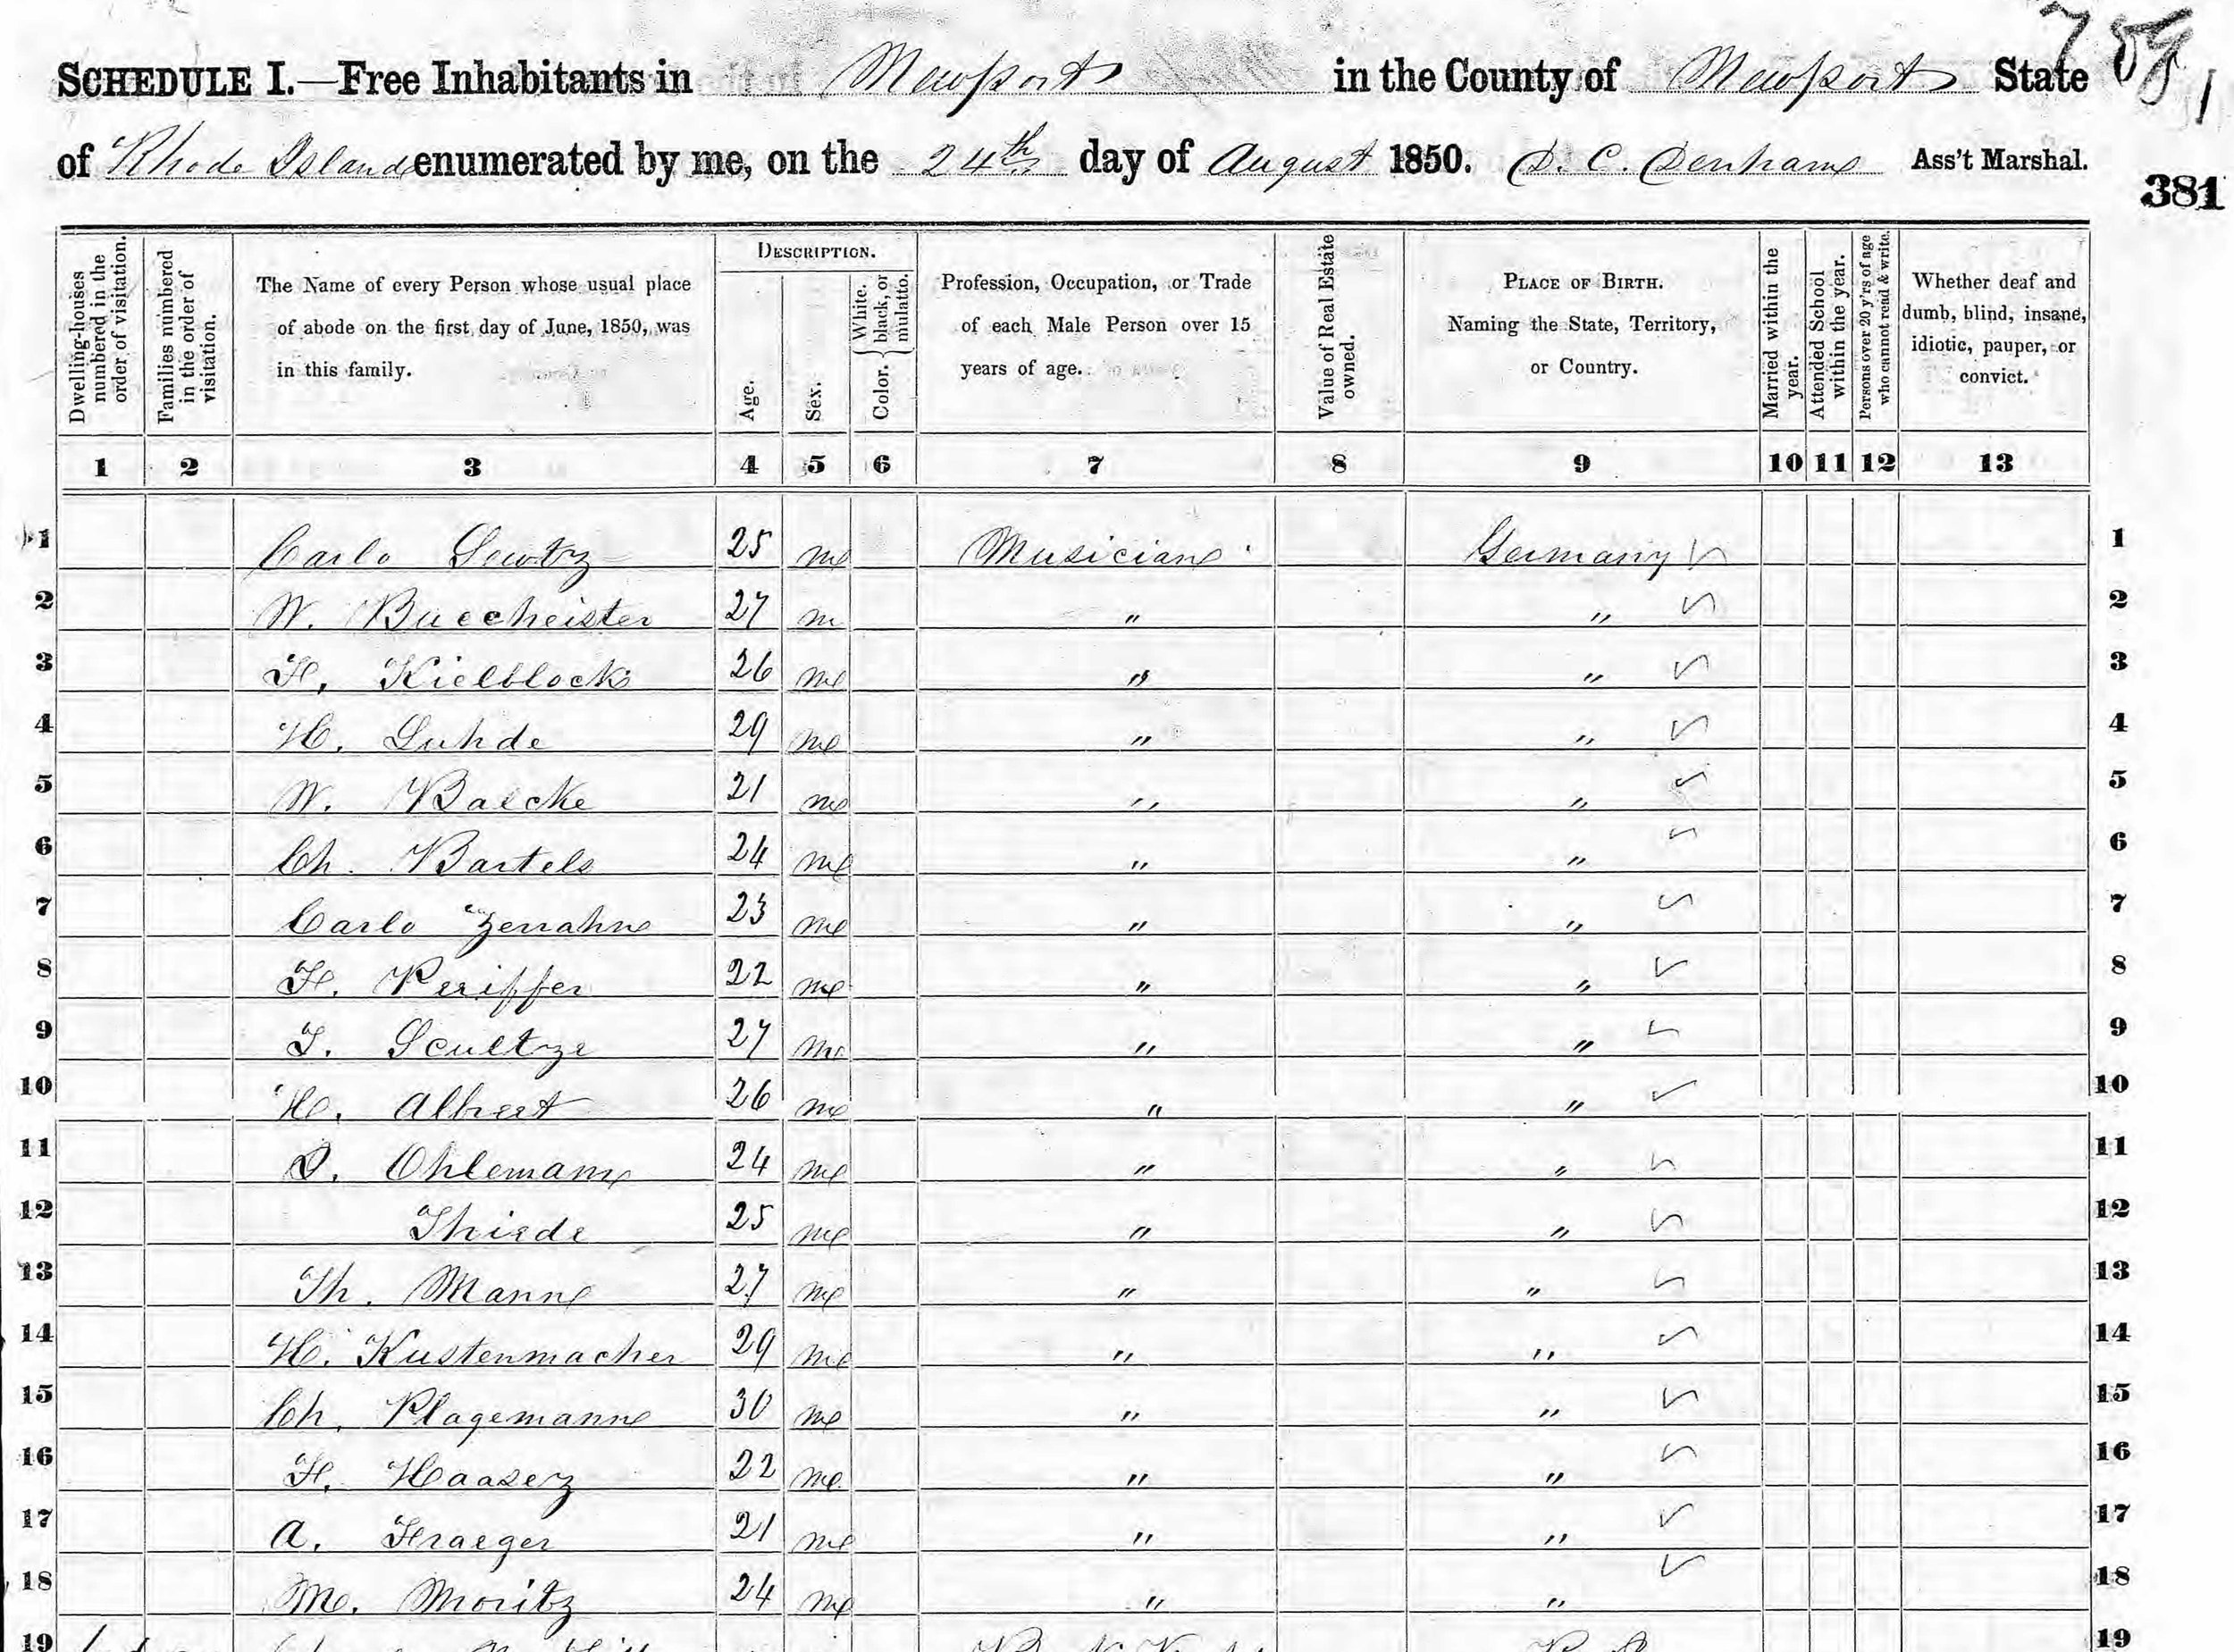 SCHEDULE I.—Free Inhabitants in Newport in the County of Newport State
of Rhode Island enumerated by me, on the 24th day of August 1850. D. C. Denham Ass't Marshal.
381
Dwelling-houses numbered in the order of visitation.
Families numbered in the order of visitation.
The Name of every Person whose usual place of abode on the first day of June, 1850, was in this family.
DESCRIPTION.
Age.
Sex.
Color. { White, black, or mulatto.
Profession, Occupation, or Trade of each Male Person over 15 years of age.
Value of Real Estate owned.
PLACE OF BIRTH. Naming the State, Territory, or Country.
Married within the year.
Attended School within the year.
Persons over 20 y'rs of age who cannot read & write.
Whether deaf and dumb, blind, insane, idiotic, pauper, or convict.
1 2 3 4 5 6 7 8 9 10 11 12 13
1 Carlo 25 m Musician Germany 1
2 W. Buecheister 27 m " " 2
3 F. Kielblock 26 m " " 3
4 H. Luhde 29 m " " 4
5 W. Balcke 21 m " " 5
6 Ch. Bartels 24 m " " 6
7 Carlo Zerrahn 23 m " " 7
8 F. 22 m " " 8
9 T. Scultze 27 m " " 9
10 H. Albrest 26 m " " 10
11 Ohlemann 24 m " " 11
12 Thiede 25 m " " 12
13 Th. Mann 27 m " " 13
14 H. Kustenmacher 29 m " " 14
15 Ch. Plagemann 30 m " " 15
16 F. Haasez 22 m " " 16
17 A. Fraeger 21 m " " 17
18 M. Moritz 24 m " " 18
19 19